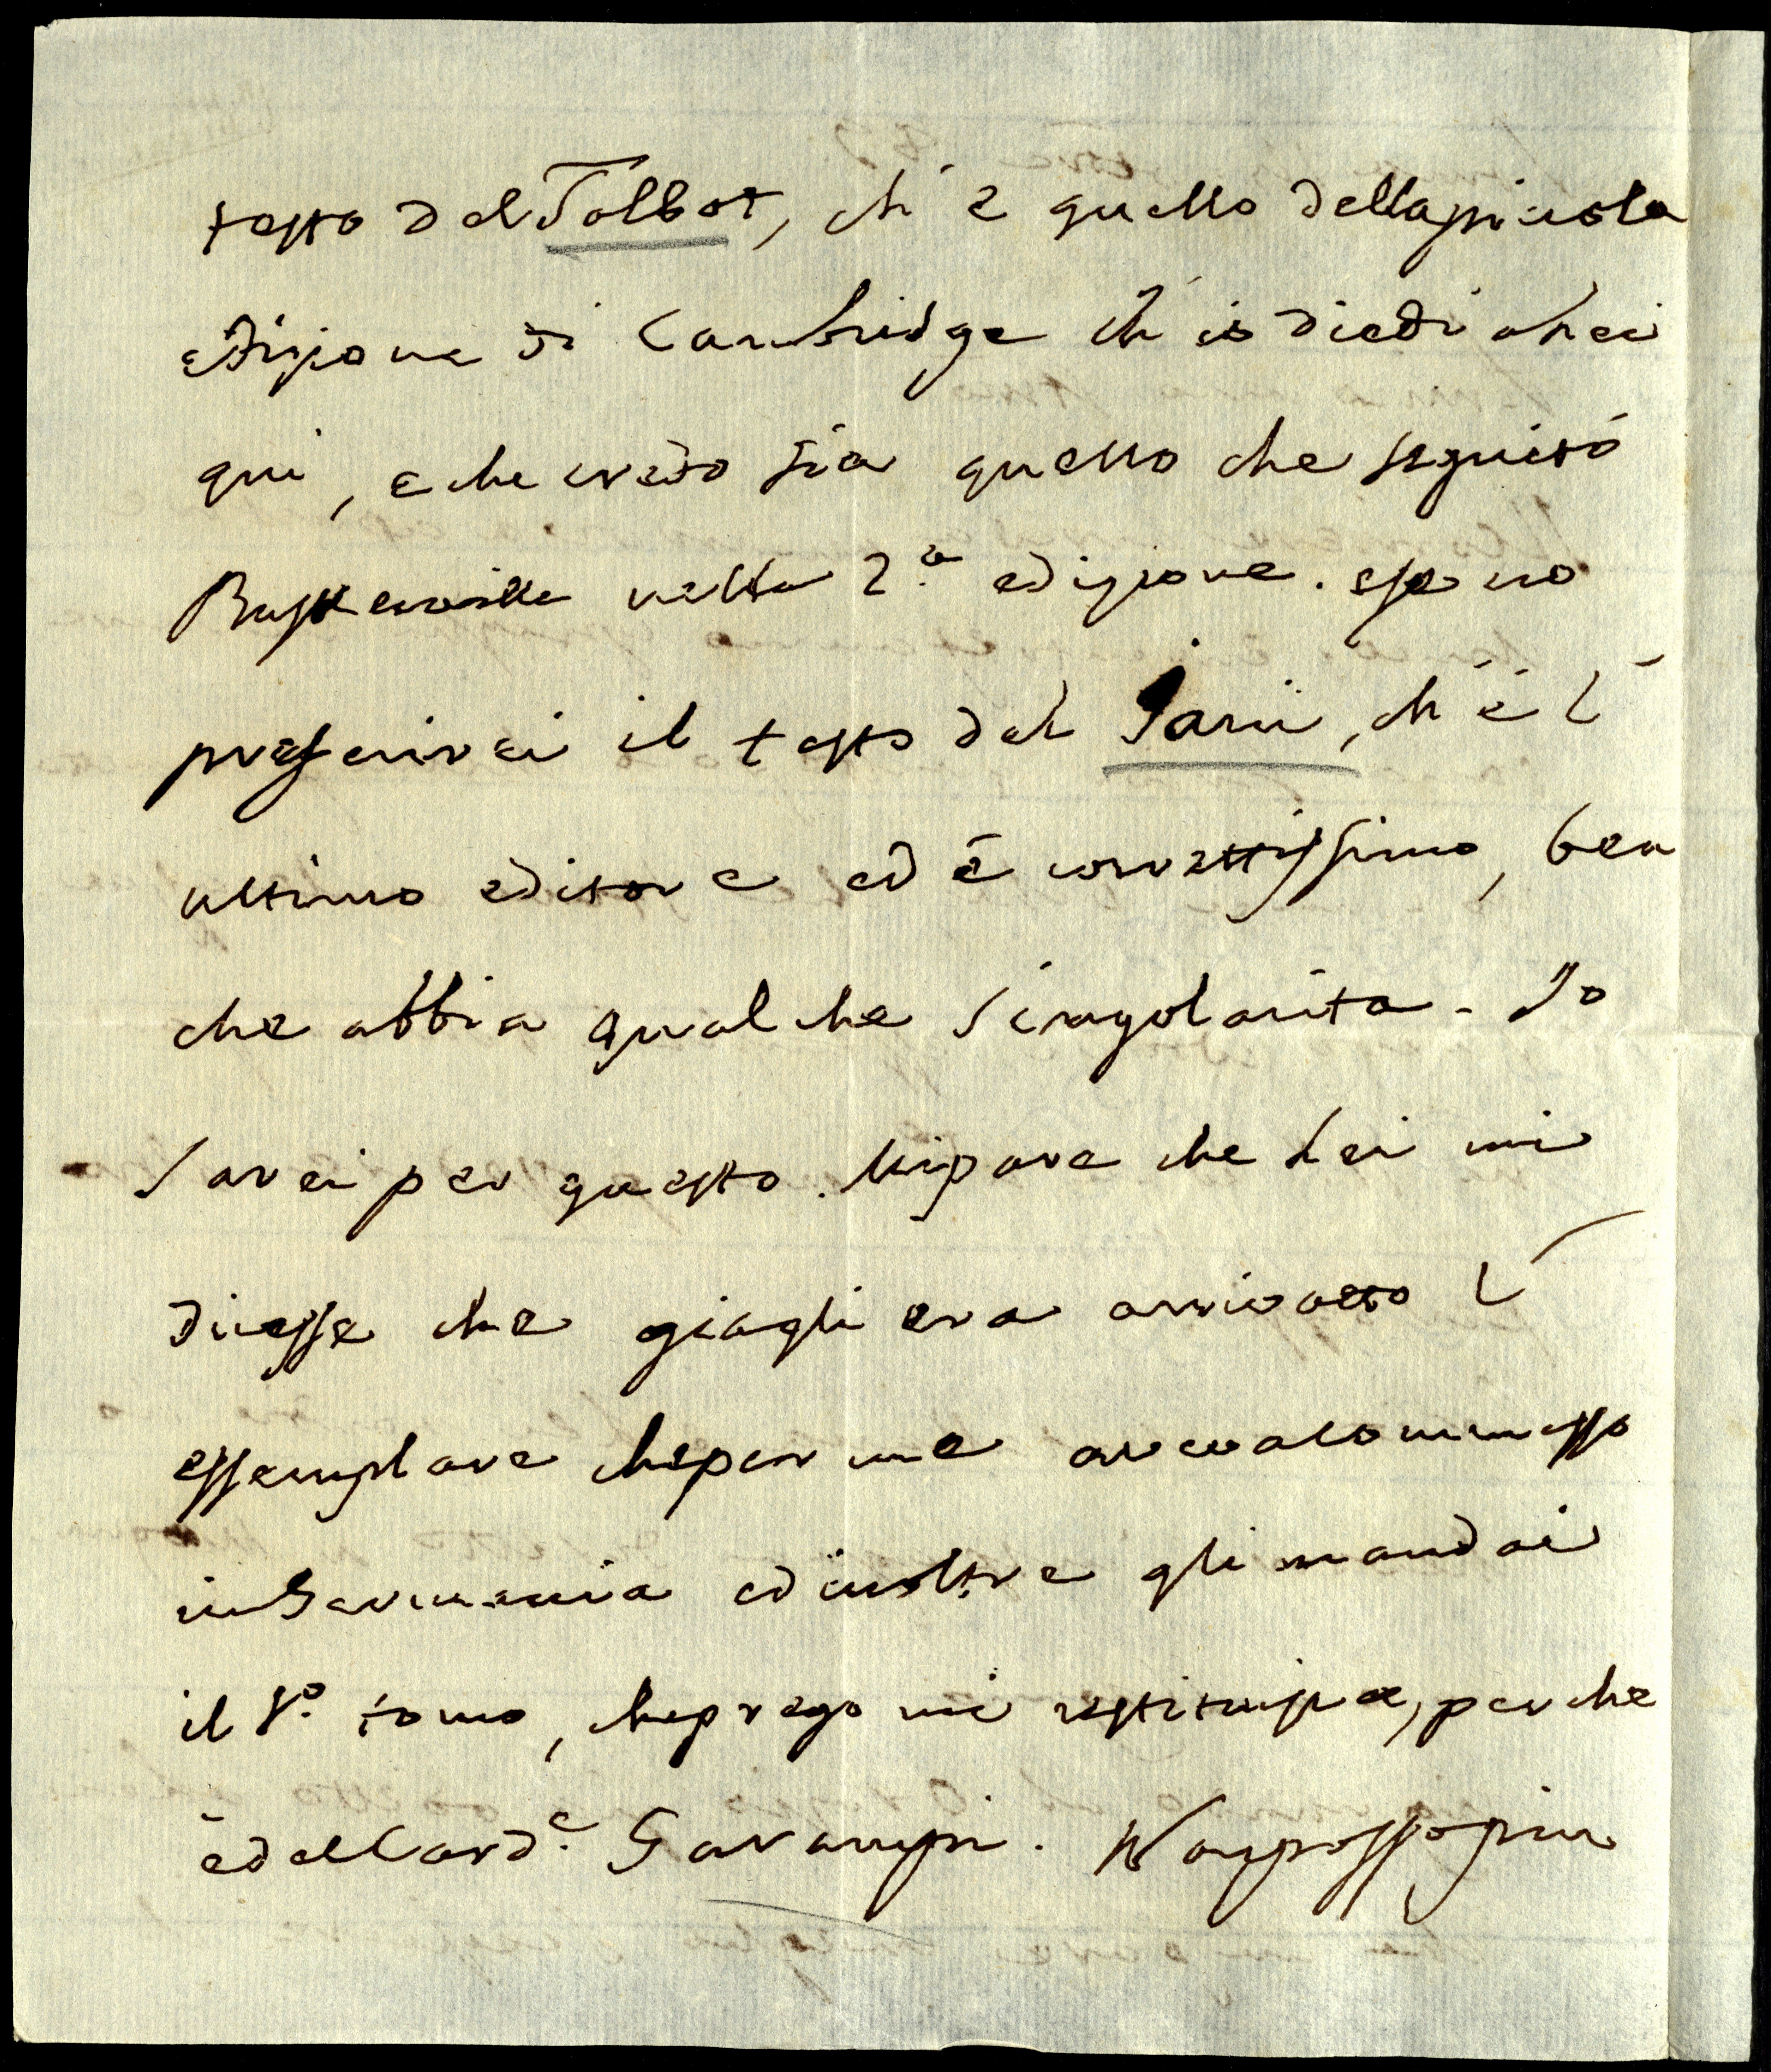 testo del Talbot, ch'è quello della piccola
edizione di Cambridge ch'io diedi a Lei
qui, e che credo sia quello che seguitò
Baskerville nella 2.a edizione. se no
preferirei il testo del Jani, ch'è l'
ultimo editore ed è correttissimo, ben
che abbia qualche singolarita. Io
sarei per questo. Mi pare che Lei mi
dicesse che gia gli era arrivato l'
essemplare che per me aveva commesso
in Germania ed inoltre gli mandai
il 1.o tomo, che prego mi restituisca, perche
è del Card.e Garampi. Non posso piu